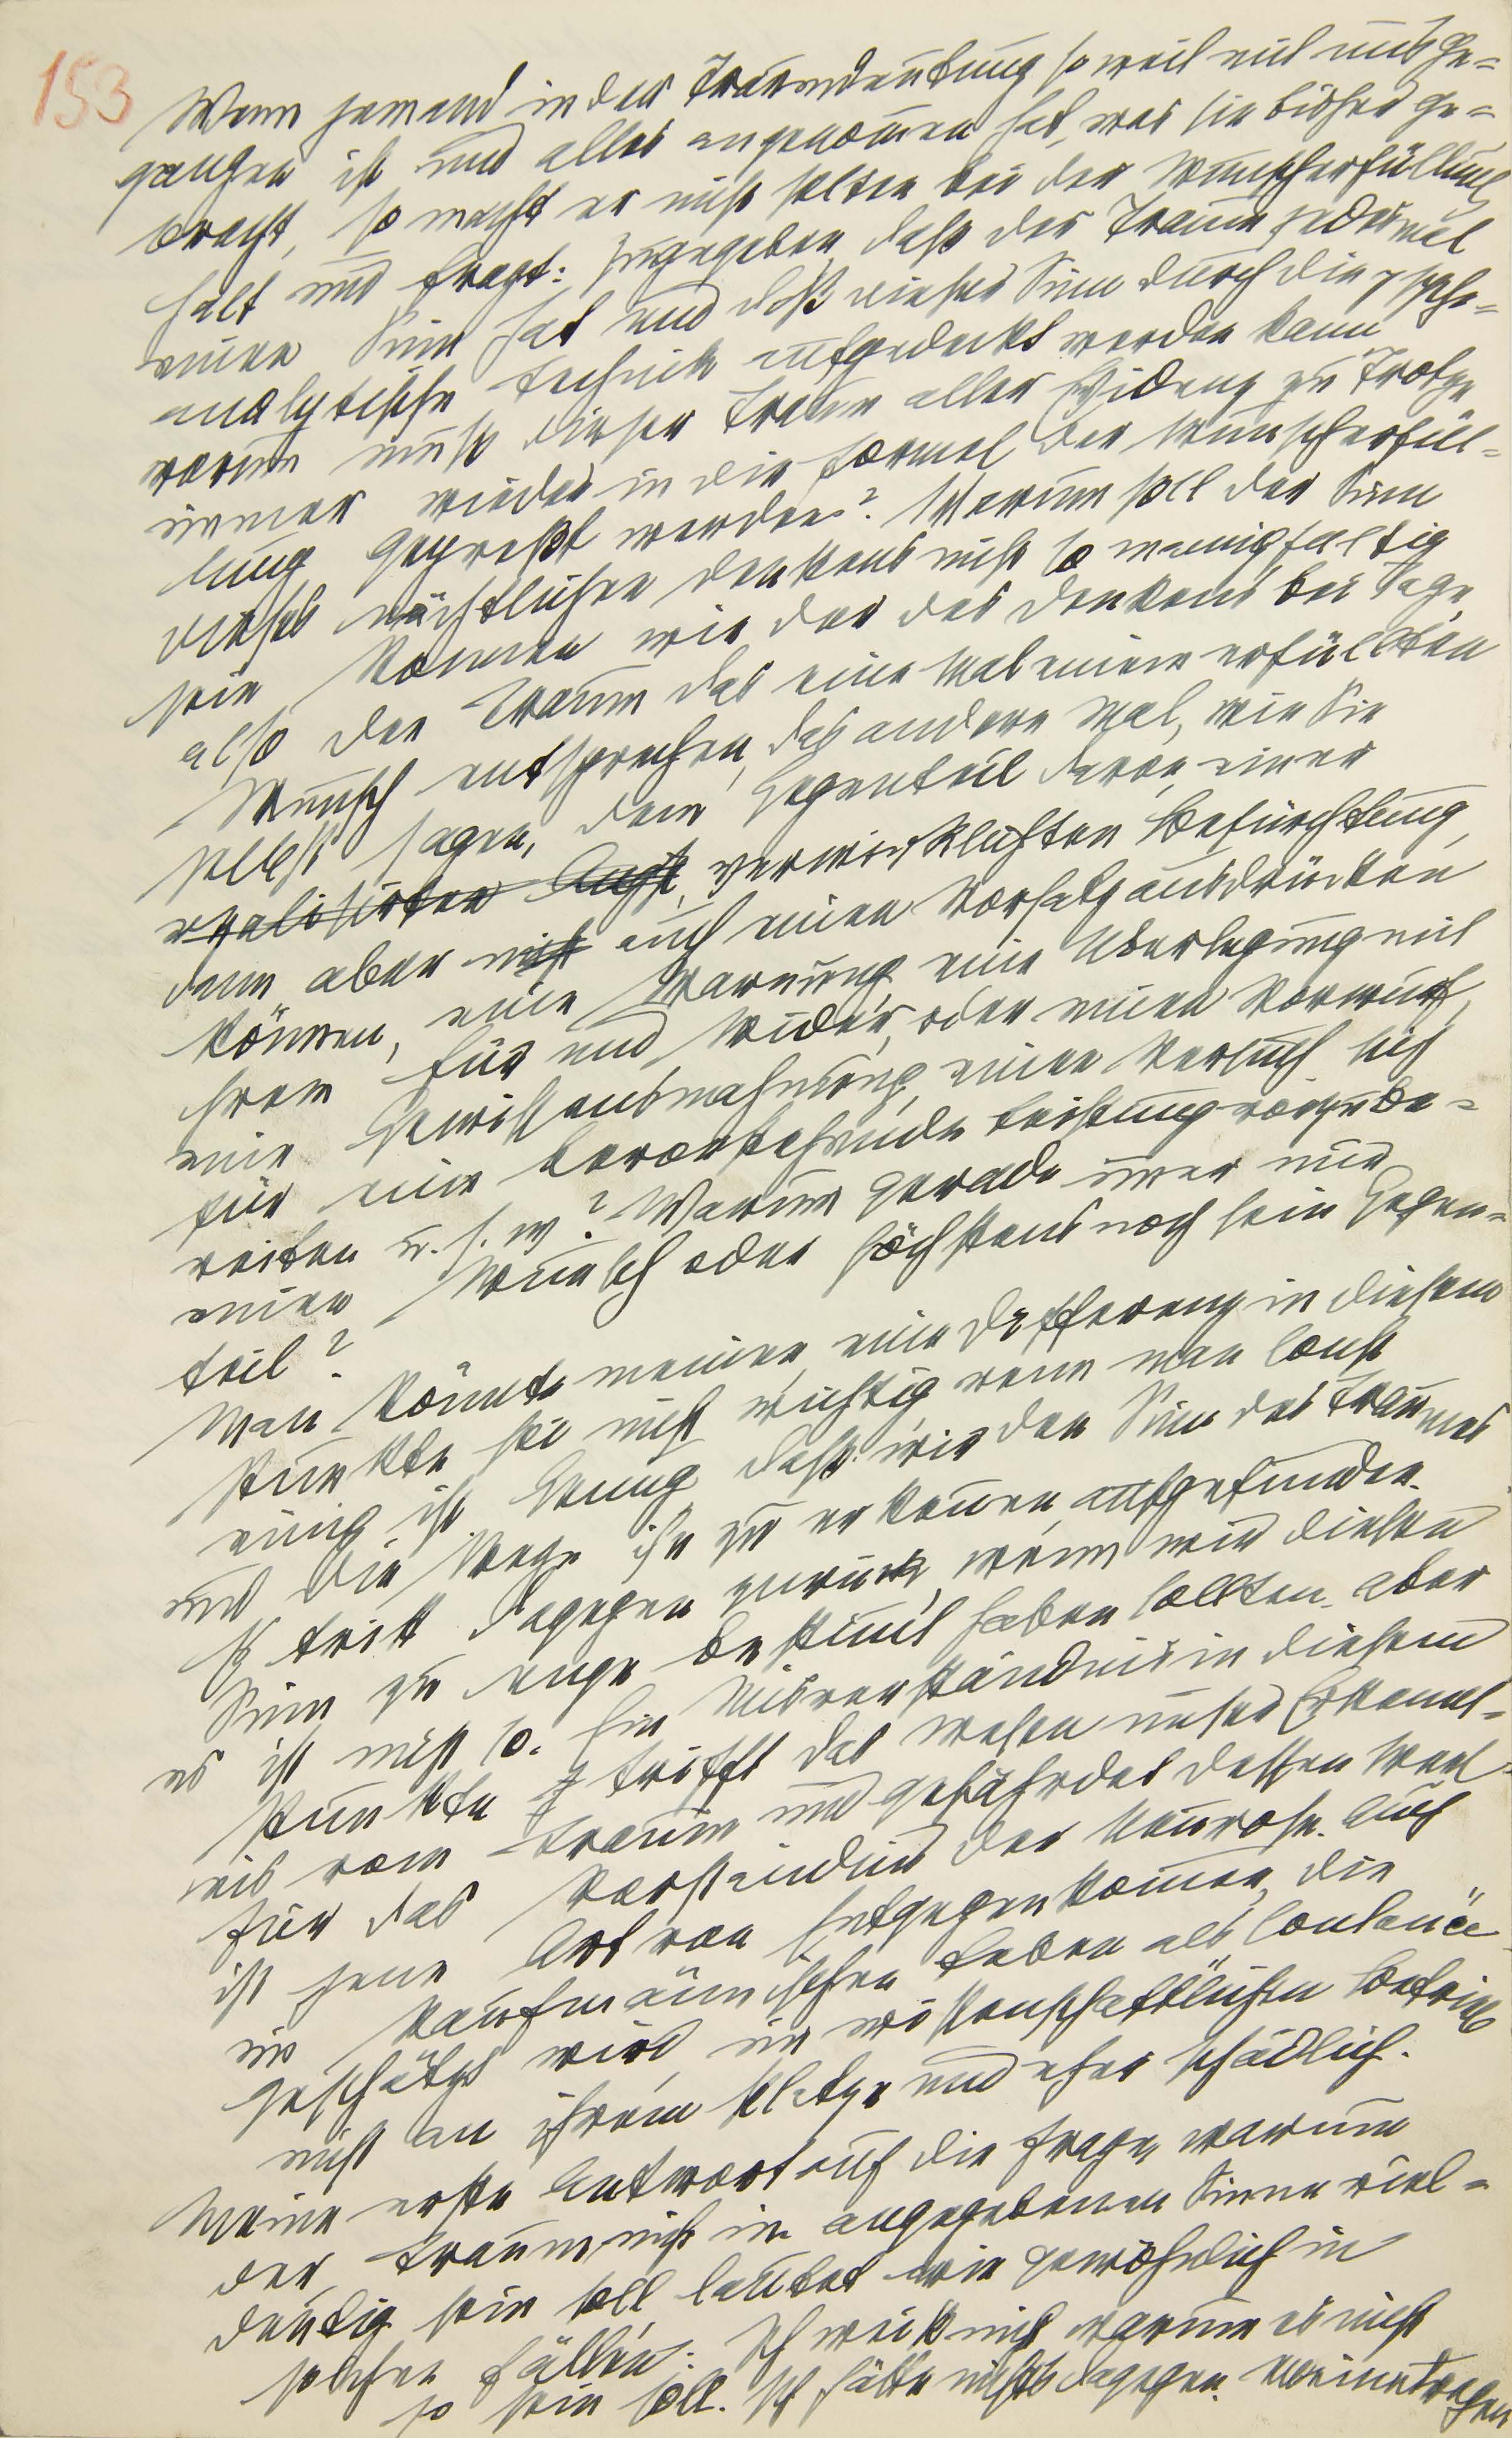 153
Wenn jemand in der Traumdeutung so weit mit uns ge=
gangen ist und alles angenommen hat, was sie bisher ge=
bracht, so macht er nicht selten bei der Wunscherfüllung
halt und fragt: zugegeben, daß der Traum jedesmal
einen Sinn hat und daß dieser Sinn durch die psycho=
analytische Technik aufgedeckt werden kann
warum muß dieser Traum aller Evidenz zu Trotze
immer wieder in die Formel der Wunscherfül=
lung gepreßt werden? Warum soll der Sinn
dieses nächtlichen Denkens nicht so mannigfaltig
sein können wie der des Denkens bei Tage
also der Traum das eine Mal einem erfüllten
Wunsch entsprechen, das andere Mal, wie Sie
selbst sagen, dem Gegenteil davon, einer
realisirten Angst, verwirklichten Befürchtung,
dann aber nicht auch einen Vorsatz ausdrücken
können, eine Warnung, eine Überlegung mit
ihrem Für und Wider, oder einen Vorwurf,
eine Gewissensmahnung, einen Versuch sich
für eine bevorstehende Leistung vorzube=
reiten u. s. w? Warum gerade immer nur
einen Wunsch oder höchstens noch sein Gegen=
teil?
Man könnte meinen, eine Differenz in diesem
Punkte sei nicht wichtig wenn man sonst
einig ist. Genug daß wir den Sinn des Traumes
und die Wege ihn zu erkennen aufgefunden.
Es tritt dagegen zurück, wenn wir diesen
Sinn zu enge bestimmt haben sollten. Aber
es ist nicht so. Ein Misverständnis in diesem
Punkte trifft das Wesen unser Erkennt=
nis vom Traum und gefährdet dessen Wert
für das Verständnis der Neurose. Auch
ist jene Art von Entgegenkommen, die
im kaufmännischen Leben als Coulance
geschätzt wird, im wissenschaftlichen Betrieb
nicht an ihrem Platze und eher schädlich.
Meine erste Antwort auf die Frage, warum
der Traum nicht im angegebenen Sinne viel=
deutig sein soll, lautet wie gewöhnlich in
solchen Fällen: Ich weiß nicht warum es nicht
so sein soll. Ich hätte nichts dagegen. Meinetwegen